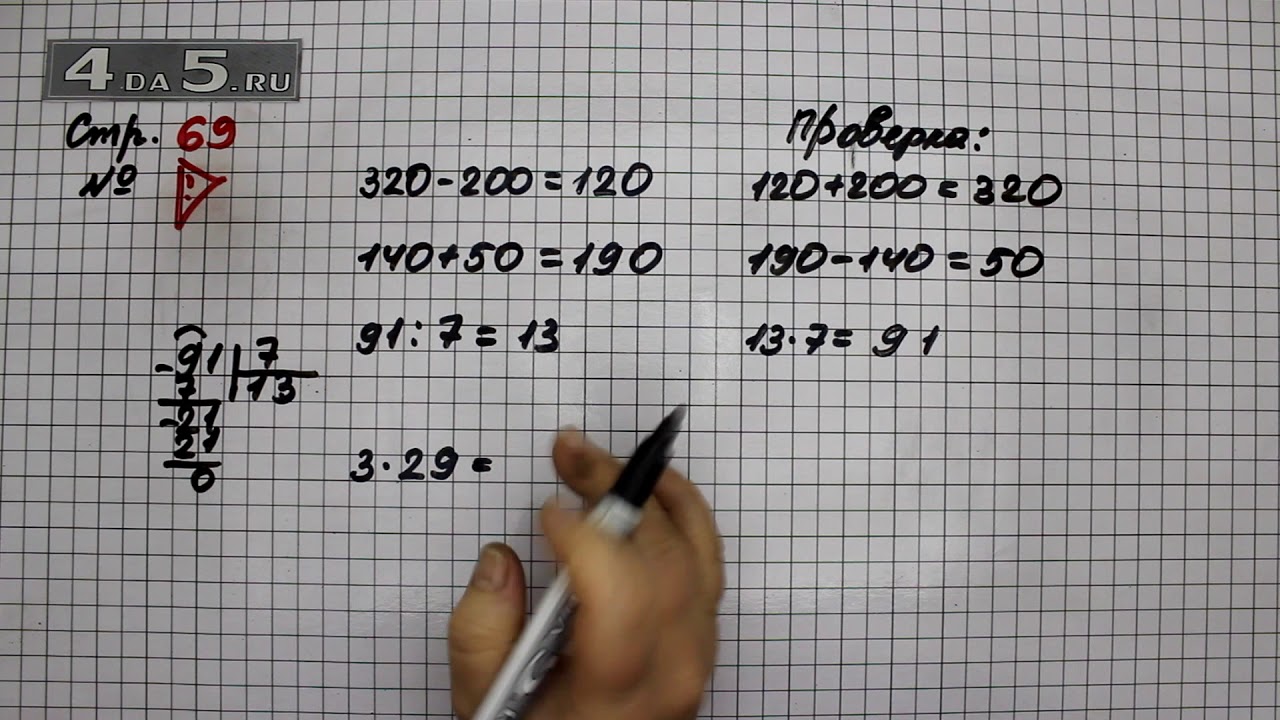 4 DA 5.RU
Стр. 69
№
Проверка:
320-200=120
120+200=320
140+50=190
190-140=50
91:7=13
13·7=91
-91 7
7 13
-21
21
0
3·29=